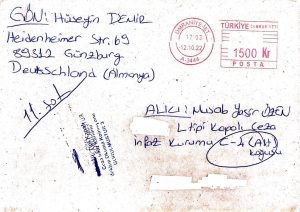 GÖN: Hüseyin DEMİR
Heidenheimer Str. 69
89312 Günzburg
Deutschland (Almanya)
ÜMRANİYE-İST.
17:03
12.10.22
A-3446
TÜRKİYE CUMHURİYETİ
1500 Kr
POSTA
ALICI: Musab Yaşr ÖZEN
L tipi Kapalı Ceza
İnfaz Kurumu C-4 (Alt)
koğuşu